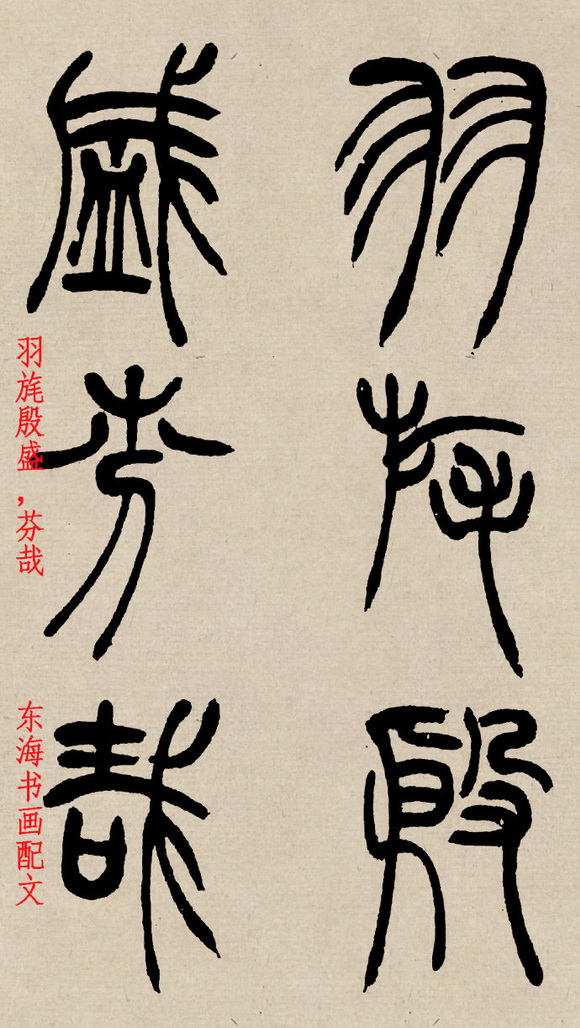 羽旄殷
盛芬哉
羽旄殷盛，芬哉
东海书画配文